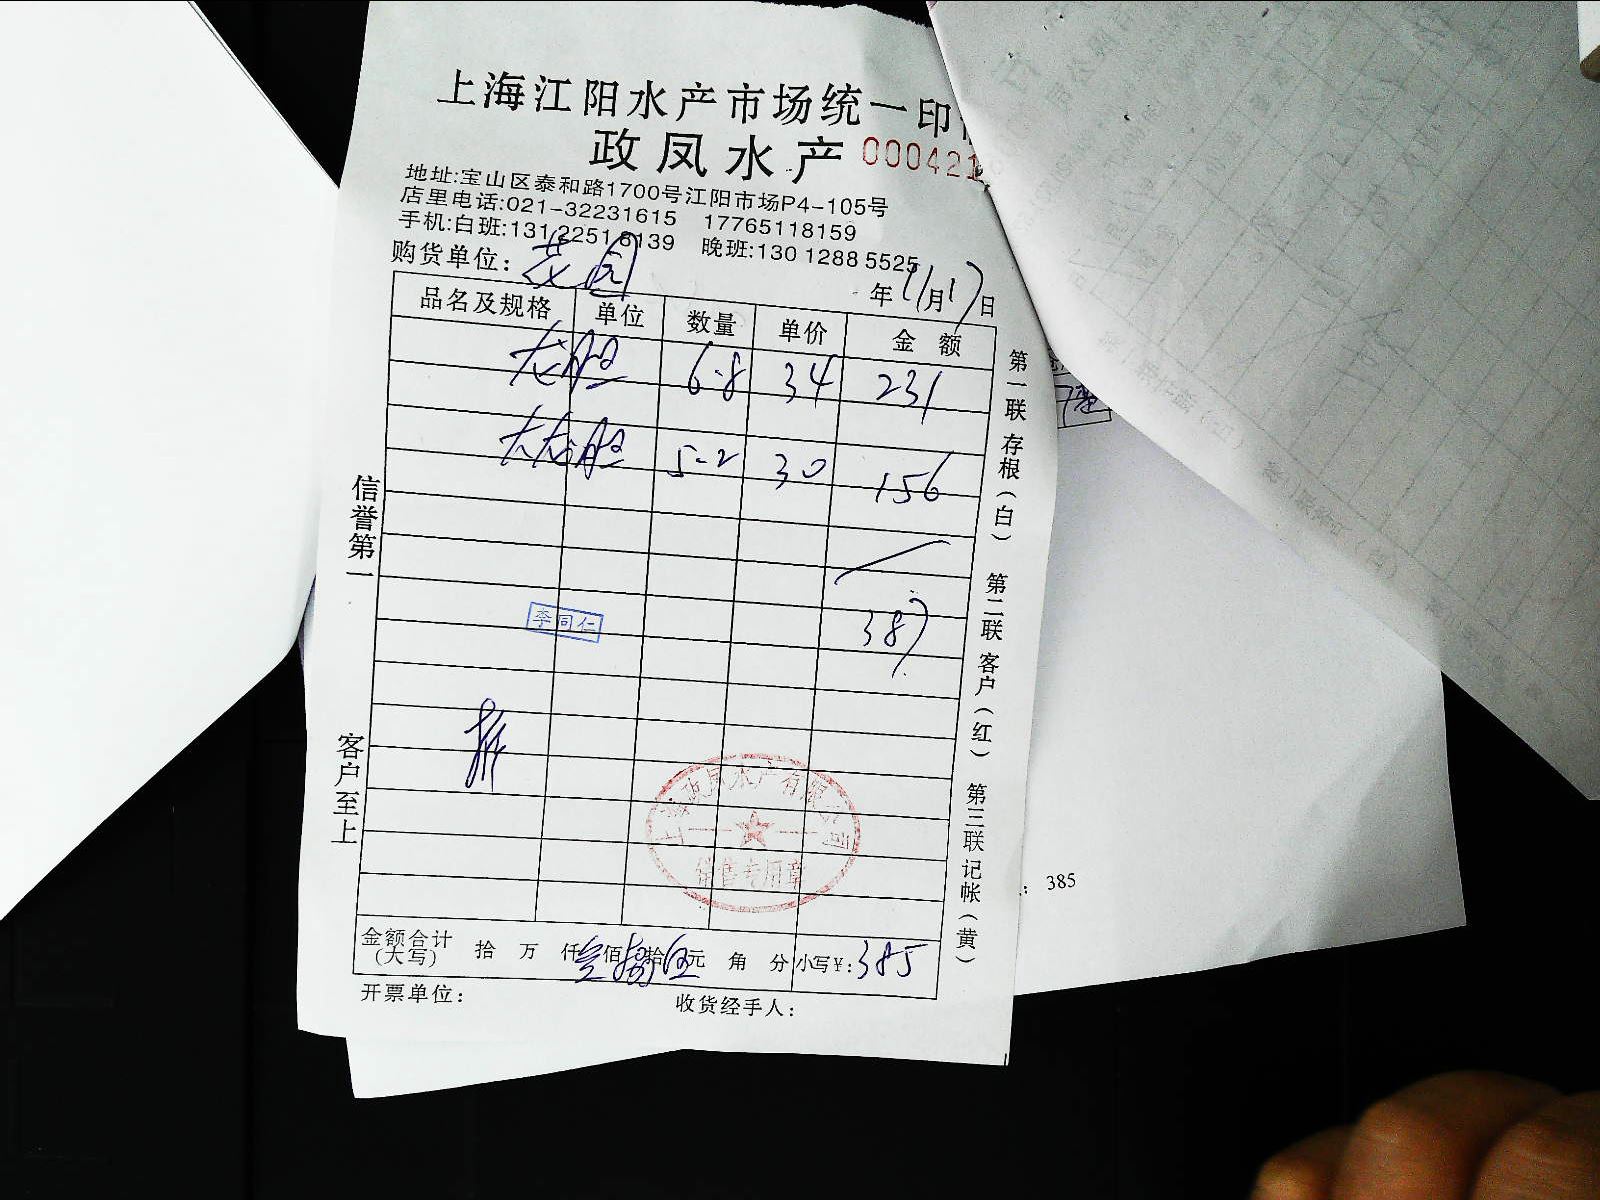 上海江阳水产市场统一印
政凤水产 000421
地址:宝山区泰和路1700号江阳市场P4-105号
店里电话:021-32231615 17765118159
手机:白班:13122518139 晚班:130 1288 5525
购货单位: 花园
年 11月17日
品名及规格 单位 数量 单价 金额
龙胆 6.8 34 231
大龙胆 5.2 30 156
387
李同仁
上海政凤水产有限公司
销售专用章
金额合计(大写) 拾 万 仟 叁佰捌拾伍元 角 分 小写¥: 385
开票单位: 收货经手人:
信誉第一
客户至上
第一联存根(白) 第二联客户(红) 第三联记帐(黄)
: 385